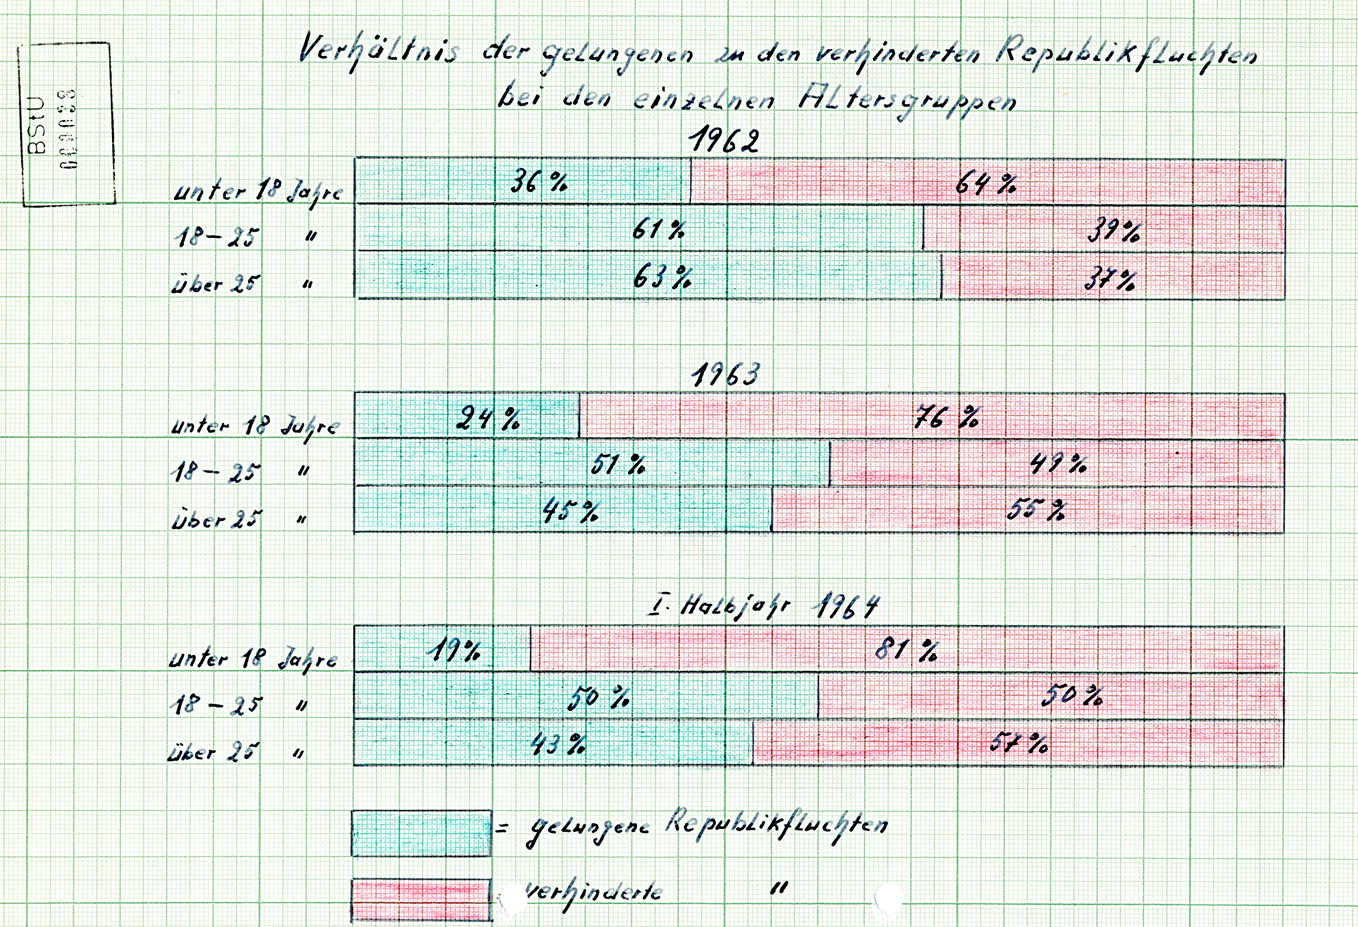 BStU
000038
Verhältnis der gelungenen zu den verhinderten Republikfluchten
bei den einzelnen Altersgruppen
1962
unter 18 Jahre 36% 64%
18-25 " 61% 39%
über 25 " 63% 37%
1963
unter 18 Jahre 24% 76%
18-25 " 51% 49%
über 25 " 45% 55%
I. Halbjahr 1964
unter 18 Jahre 19% 81%
18-25 " 50% 50%
über 25 " 43% 57%
= gelungene Republikfluchten
verhinderte "